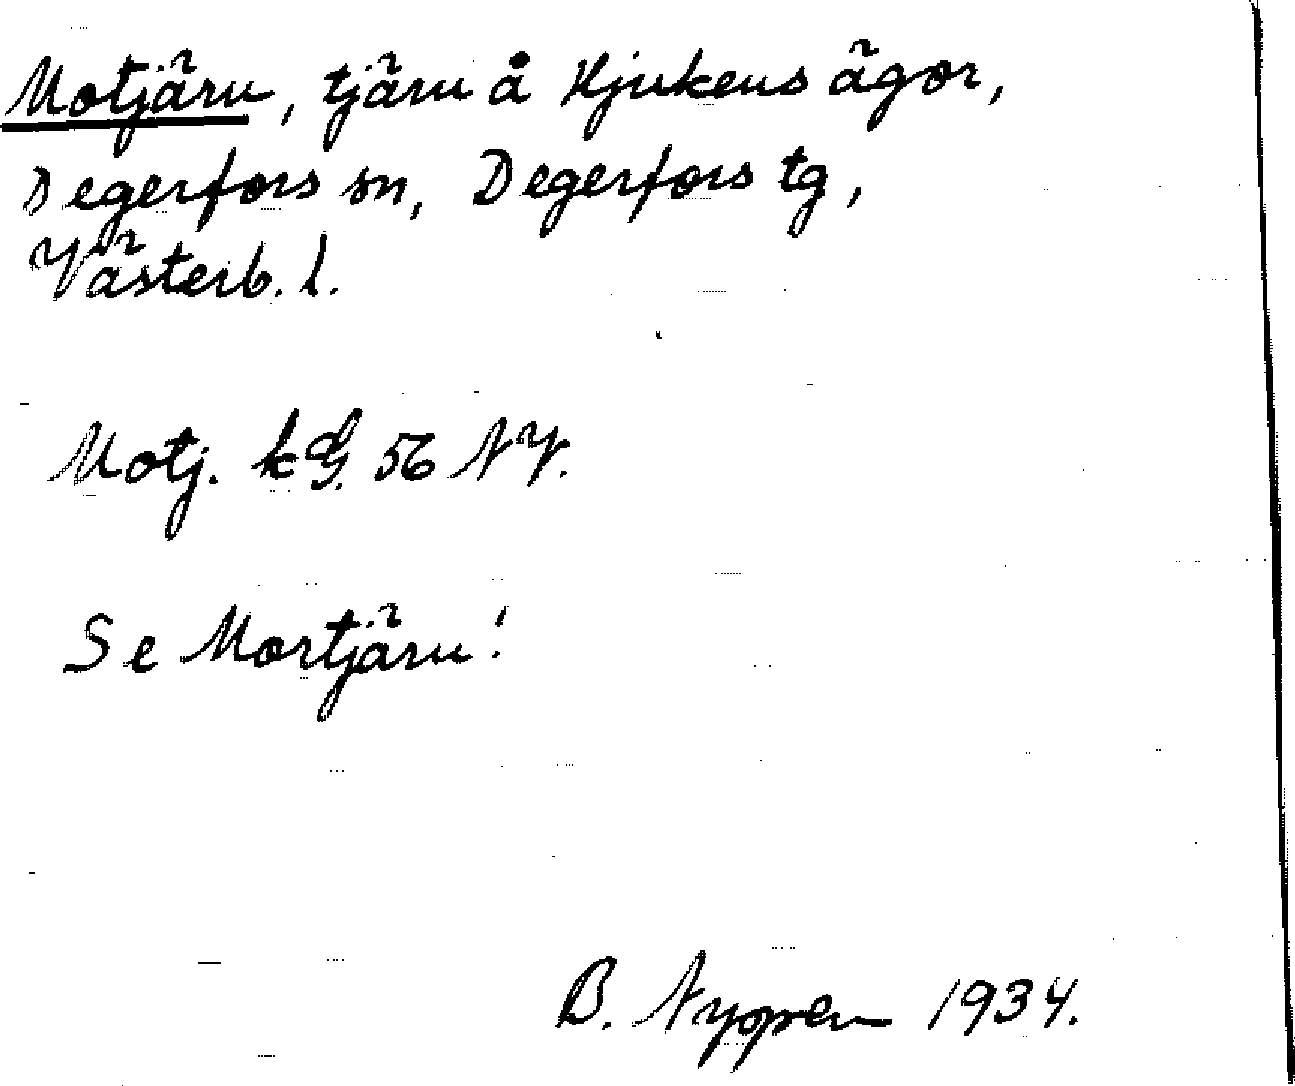 Motjärn, tjärn å Hjukens ägor,
Degerfors sn, Degerfors tg,
Västerb. l.
Motj. kG. 56 NV.
Se Mortjärn!
B. Nyopen 1934.